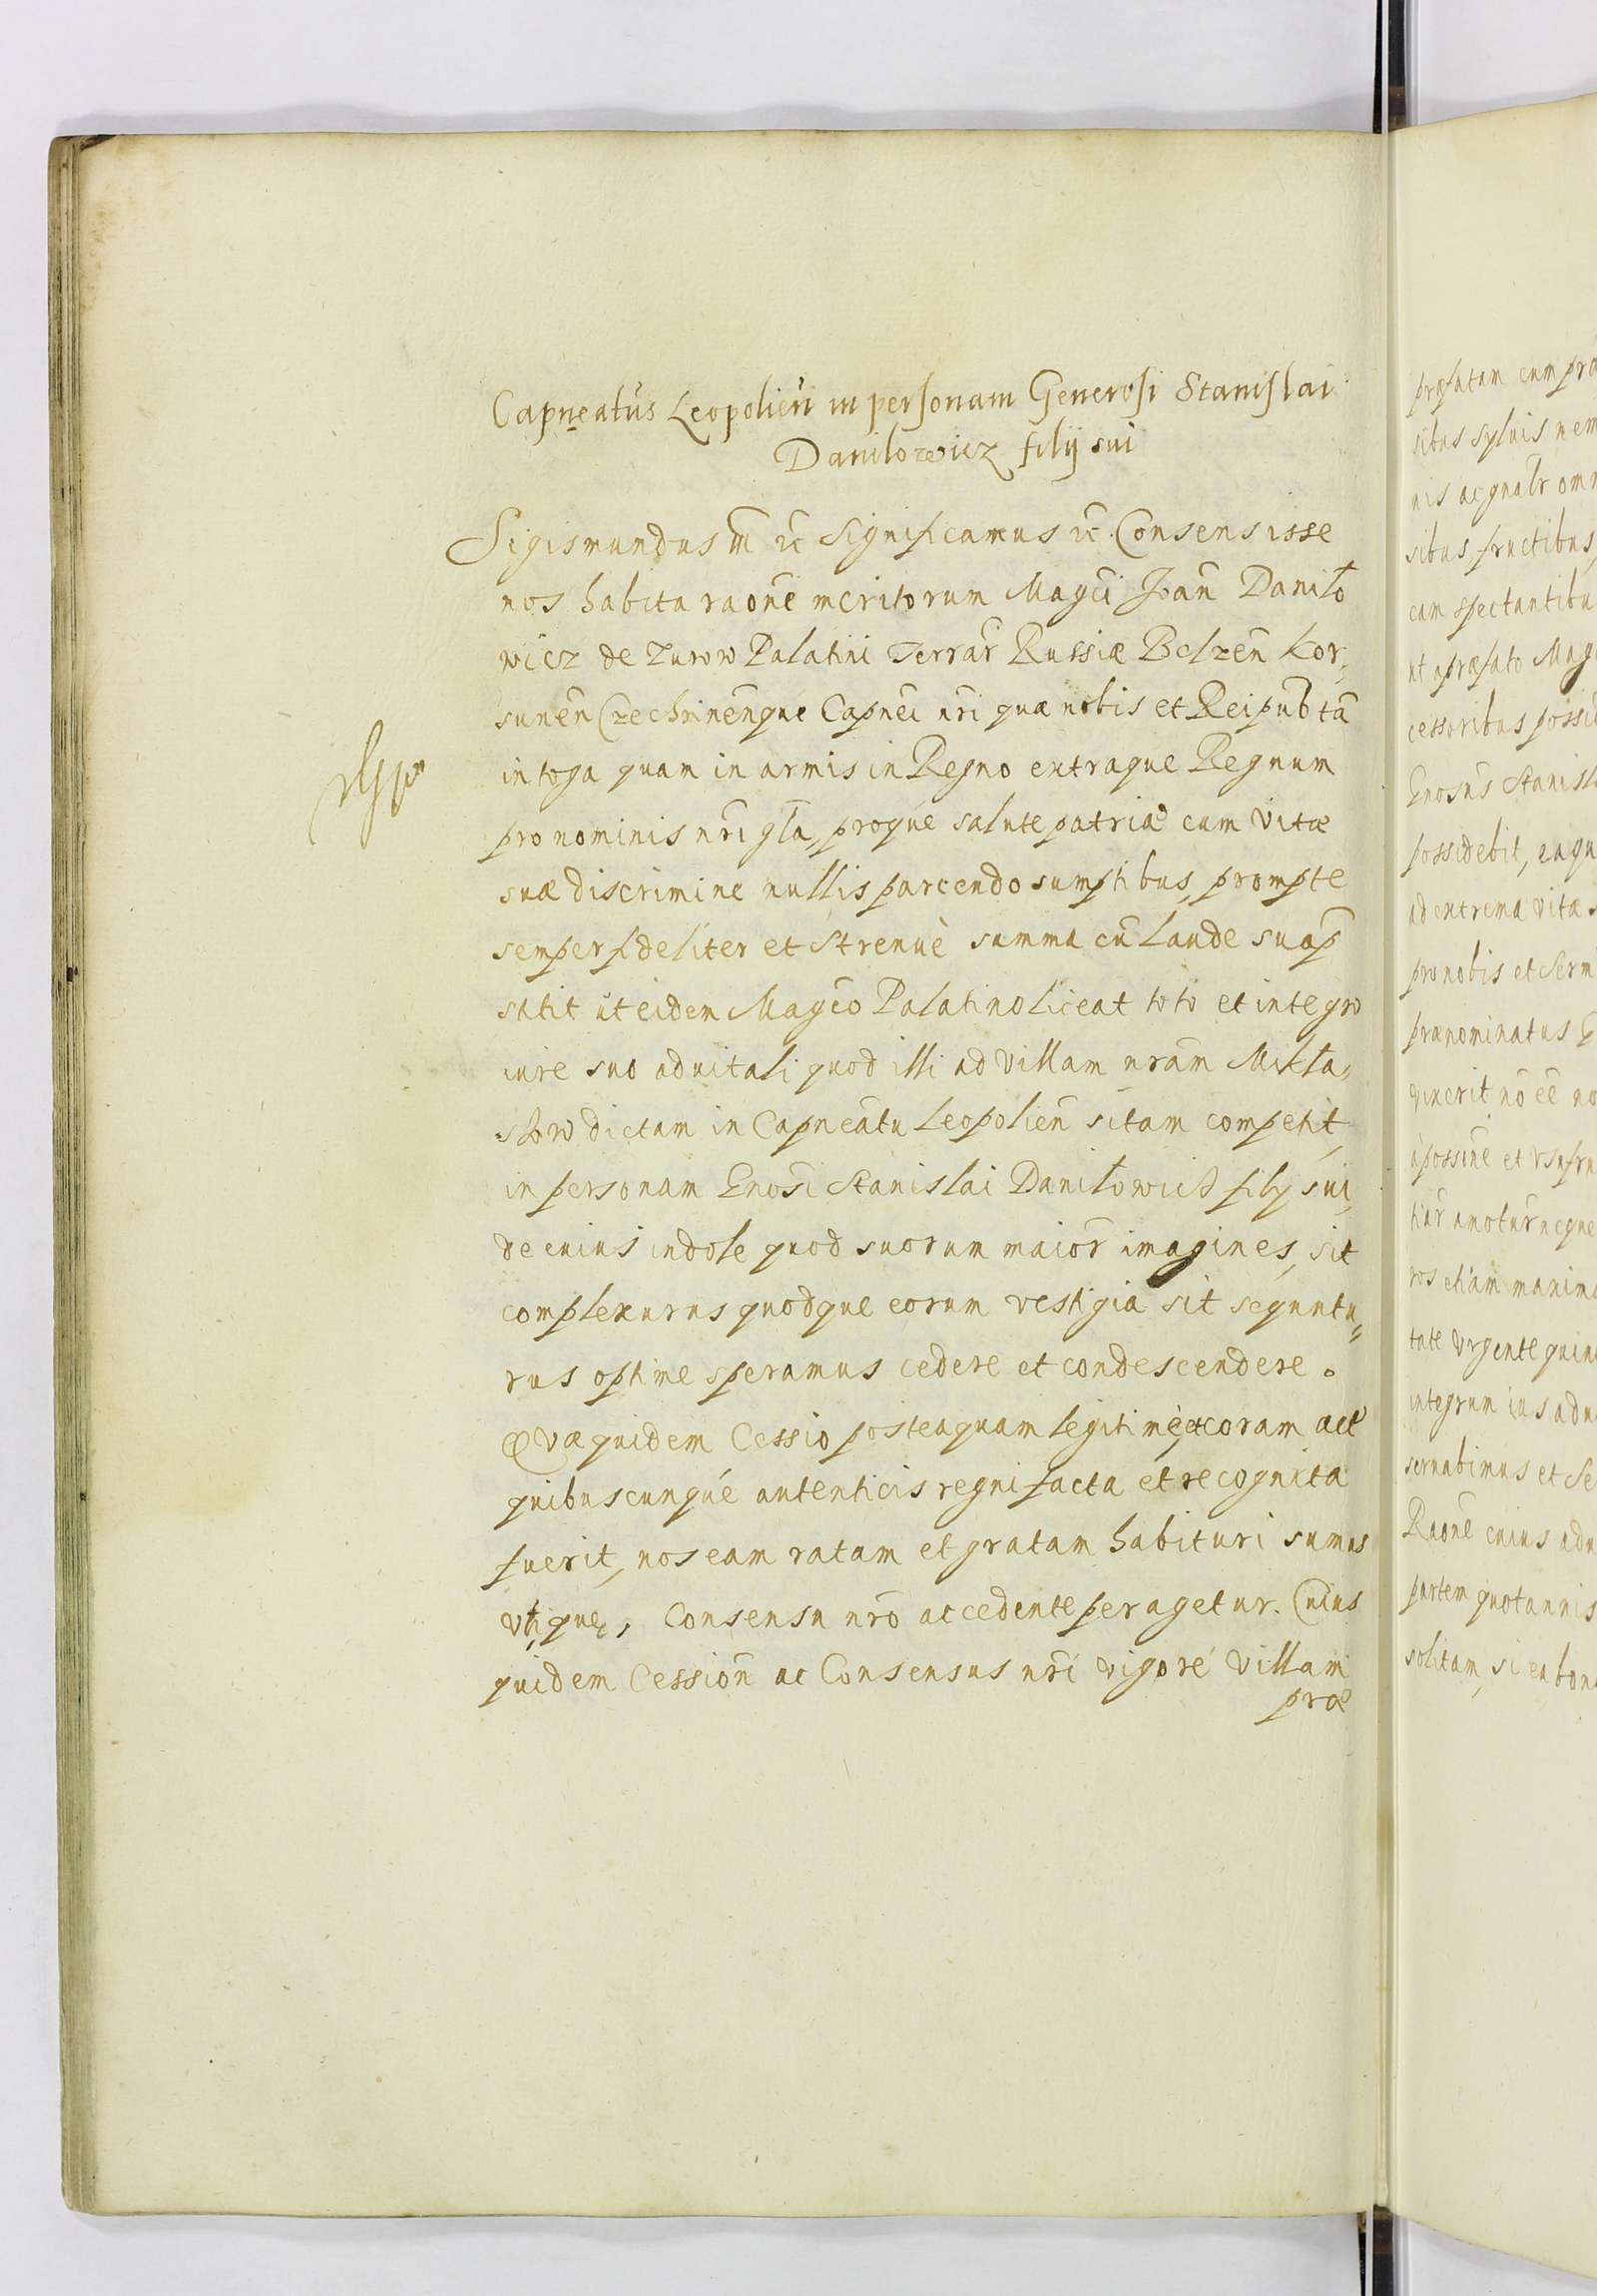 Capneatus Leopolien in personam Generosi Stanislai
Danilowicz filij sui
Sigismundus III etc Significamus etc. Consensisse
nos habita raone meritorum Magci Joan Daniło
wicz de Zurow Palatini Terrar Russiæ Belzen Kor,
sunen Czechrinenque Capnei nri quæ nobis et Reipub ta
in toga quam in armis in Regno extraque Regnum
pro nominis nri gla, proque salute patriæ cum vitæ
suæ discrimine nullis parcendo sumptibus, prompte
semper fideliter et strenuè summa cu laude sua p
stitit ut eidem Magco Palatino liceat toto et integro
iure suo aduitali quod illi ad Villam nram Mikła,
szow dictam in Capneatu Leopolien sitam competit,
in personam Gnosi Stanislai Daniłowicz filij sui,
de cuius indole quod suorum maior imagines, sit
complexurus quodque eorum vestigia sit sequutu„
rus optime speramus cedere et condescendere.
Quæ quidem Cessio posteaquam legitimè, et coram act
quibuscunque autenticis regni facta et recognita
fuerit, nos eam ratam et gratam habituri sumus
vtique, Consensu nro accedente peragetur. Cuius
quidem Cession ac Consensus nri vigore Villam
præ
præfatam cum pra
sibus syluis nem
nis ac gnalr omn
sibus, fructibus,
eam spectantibu
ut a præfato Mag
cessoribus possid
Gnosus Stanisl
possidebit, eaqu
ad extrema vitæ s
pro nobis et Serm
prænominatus G
vixerit nō eē no
a possine et vsufru
tiar amotur neque
ros etiam maxima
tate vrgente quin
integrum ius adu
seruabimus et Se
Raone cuius adu
partem quotannis
solitam, si ea bona